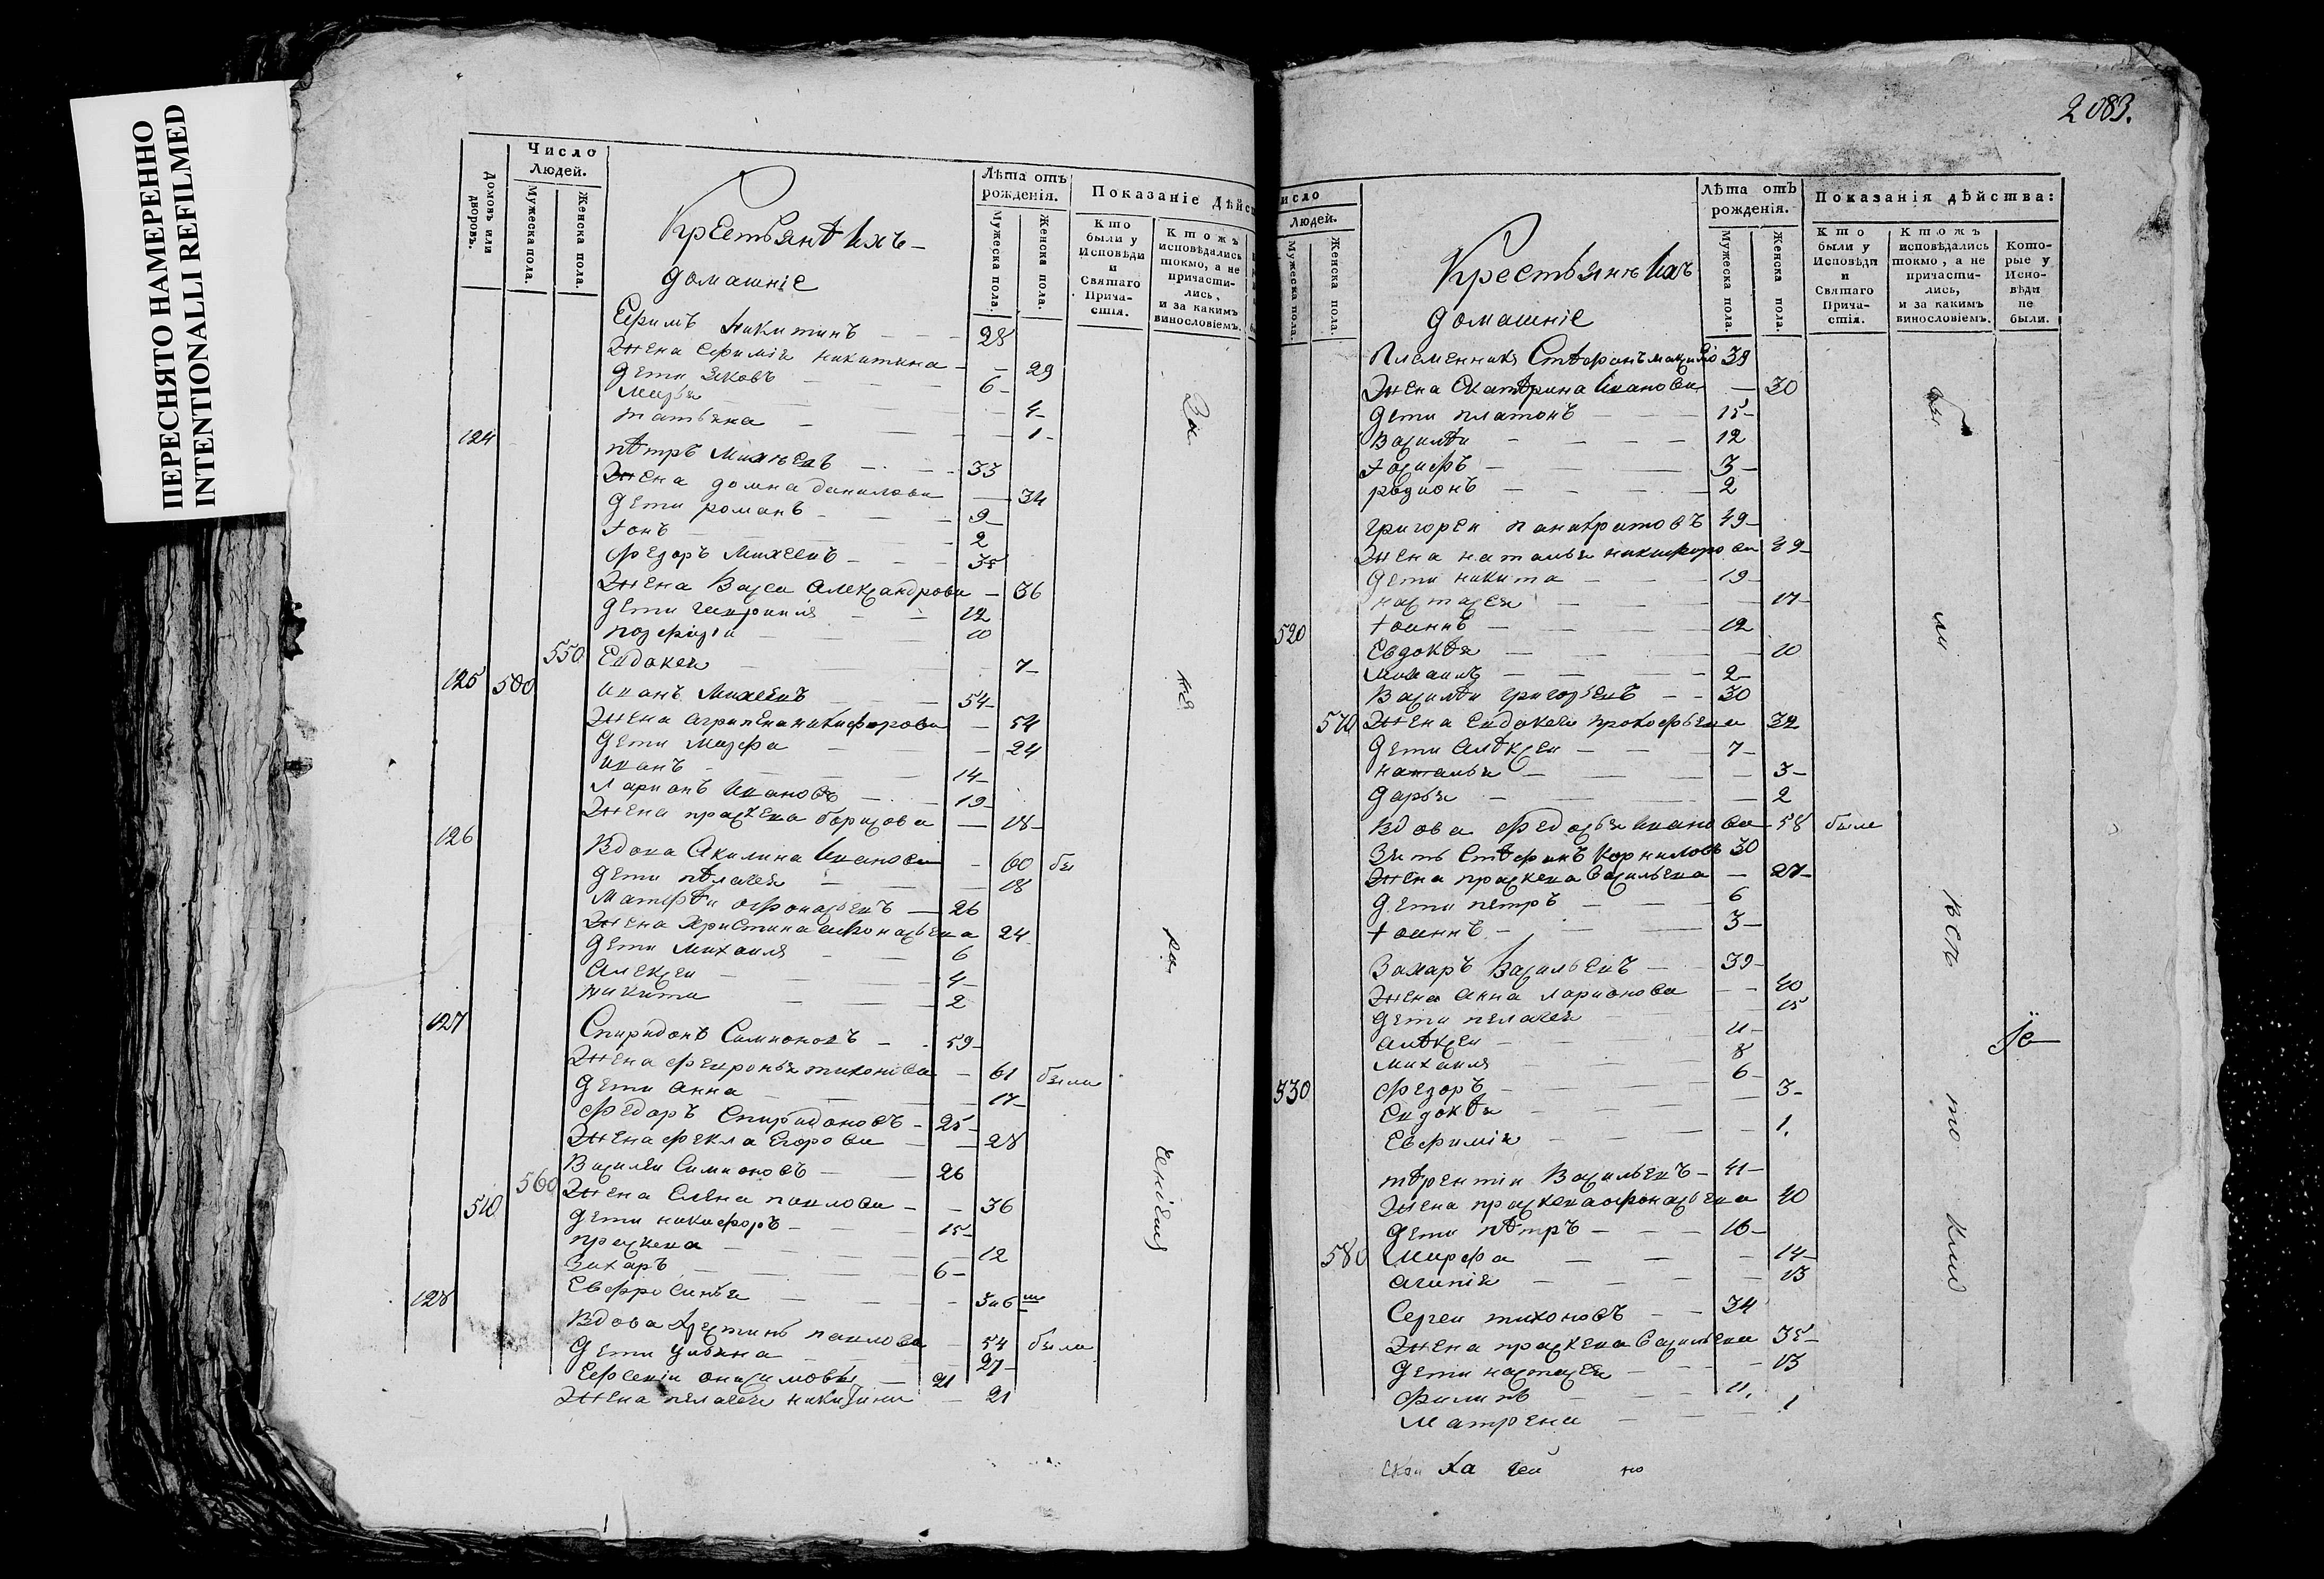 ПЕРЕСНЯТО НАМЕРЕННО
INTENTIONALLI REFILMED
Число
Людей.
Домовъ или дворовъ.
Мужеска пола.
Женска пола.
Крестьянѣ ихъ
домашніе
Лѣта отъ
рожденія.
Мужеска пола.
Женска пола.
Показаніе Дѣйс
Кто
были у
Исповѣди
и
Святаго
Прича-
стія.
Ктожъ
исповѣдались
токмо, а не
причасти-
лись,
и за какимъ
винословіемъ.
Ефимъ Никитинъ 28
Жена Ефимія никитина 29
дети Яковъ 6
Марья 4
татьяна 1
124 пѣтръ Михѣевъ 33
Жена домна данилова 34
дети романъ 9
Іонъ 2
Федоръ Михеевъ 35
Жена Васса Александрова 36
дети гаврила 12
10
550 Евдокея 7
125 500 иванъ Михеевъ 54
Жена агрипена никифорова 54
дети марфа 24
иванъ 14
Ларионъ Ивановъ 19
Жена прасковя борисова 18
126 Вдова Акилина Иванова 60 бы
дети пѣлагея 18
Матфѣи афонасьевъ 26
Жена Христина афонасьева 24
дети Михаила 6
Алексеи 4
никита 2
127 Спиридонъ Симионовъ 59
Жена февронья тихонова 61 были
дети анна 17
Федоръ Спиридоновъ 25
Жена фекла Егорова 28
Василеи Симионовъ 26
560 Жена Елена павлова 36
510 дети никифоръ 15
праскева 12
Захаръ 6
Евфросинья
128 Вдова павлова 54 была
дети ульяна 27
Ефсевіи 21
Жена пелагея никитина 21
2083.
исло
Людей.
Мужеска пола.
Женска пола.
Крестьянѣ ихъ
домашніе
Лѣта отъ
рожденія.
Мужеска пола.
Женска пола.
Показанія дѣйства:
Кто
были у
Исповѣди
и
Святаго
Прича-
стія.
Ктожъ
исповѣдались
токмо, а не
причасти-
лись,
и за какимъ
винословіемъ.
Кото-
рые у
Испо-
вѣди
не
были.
Племенникъ Стѣфанъ 39
Жена Екатѣрина Иванова 30
дети платонъ 15
Василѣи 12
Іосифъ 3
родионъ 2
григореи панкратовъ 49
Жена наталья никифорова 49
дети никита 19
настасея 17
520 Іоаннъ 12
Евдокѣя 10
2
Василѣи григорьевъ 30
570 Жена Евдокея прокофьева 32
дети Алѣксеи 7
наталья 3
дарья 2
Вдова федосья иванова 58 была
Зять Стѣфанъ Корниловъ 30
Жена праскева Васильева 27
дети петръ 6
Іоаннъ 3
Захаръ Васильевъ 39
Жена анна ларионова 40
дети пелагея 15
алѣксеи 11
михаила 8
530 Федоръ 6
Евдокѣя 3
Евфимія 1.
тѣрентіи Васильевъ 41
Жена праскева афонасьева 40
дети пѣтръ 16
580 Марфа 14
агапія 13
Сергеи тихоновъ 34
Жена праскева Васильева 35
дети настасея 13
филипъ 11.
Матрена 1